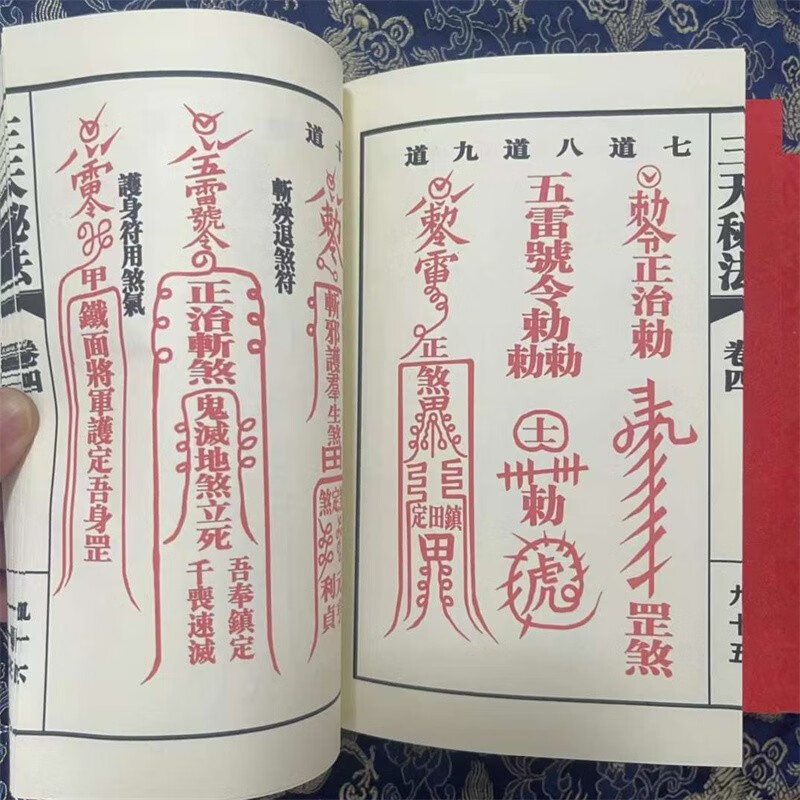 三天秘法
卷四
九十五
七道
八道
九道
勅令正治勅
罡煞
五雷號令勅勅勅
士
勅
虎
雷
正
煞
鎮田定
十道
斬邪護羣生煞
田
定煞
利貞
斬殃退煞符
五雷號令
正治斬煞
鬼滅地煞立死
吾奉鎮定
千喪速滅
護身符用煞氣
雷令
甲
鐵面將軍護定吾身罡
三天秘法
卷四